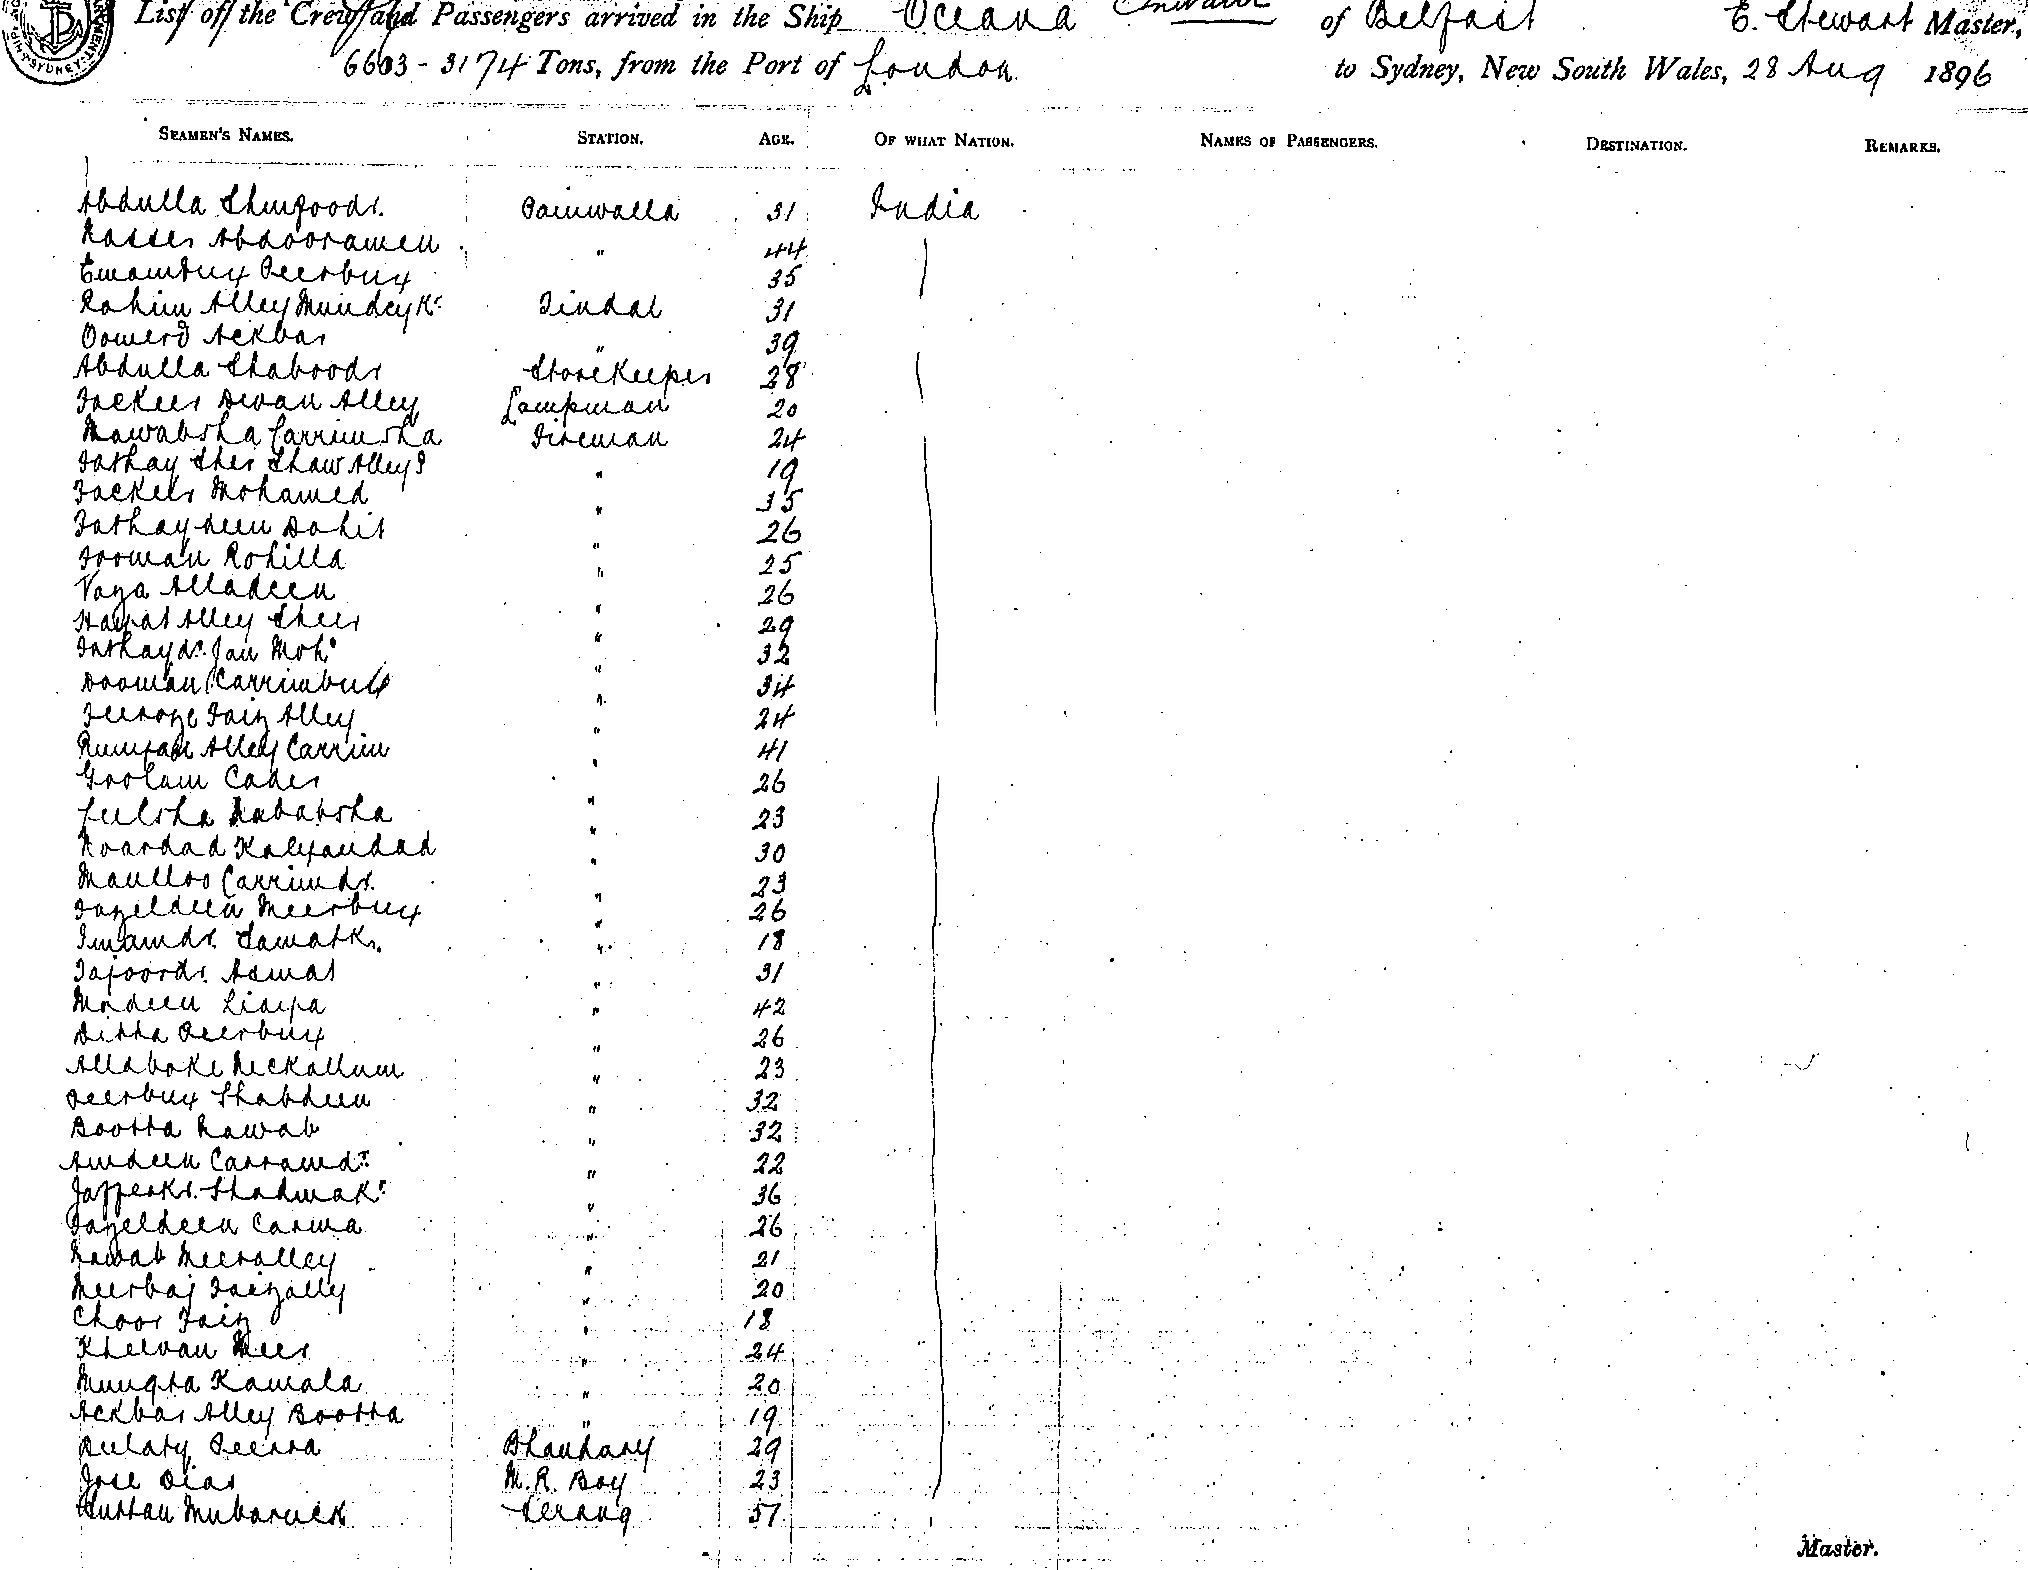 List of the Crew and Passengers arrived in the Ship Oceana of Belfast E. Stewart Master,
6603 - 3174 Tons, from the Port of London to Sydney, New South Wales, 28 Aug 1896
SEAMEN'S NAMES. STATION. AGE. OF WHAT NATION. NAMES OF PASSENGERS. DESTINATION. REMARKS.
Abdulla Shugoodr. 31 India
Nasser Abdooramen " 44
Emambux Peerbux 35
Rahim Alley Mundey Kr. Tindal 31
Oomerd Ackbar " 39
Abdulla Shaboodr Storekeeper 28
Fackeer Dewan Alley Lampman 20
Nawabsha Carrimsha Fireman 24
Fathay Sher Shaw Alley " 19
Fackeer Mohamed " 35
Fathaydeen Dohit " 26
Jooman Rohilla " 25
Vaza Alladeen " 26
Hayat Alley Sheer " 29
Fathayd. Jan Moh. " 32
Dooman Carrimbux " 34
Feeroze Faiz Alley " 24
Rumjan Alley Carrim " 41
Goolam Cader " 26
Gulsha Nababsha " 23
Noardad Kalyandad " 30
Maulloo Carrimdr. " 23
Fazeldeen Meerbux " 26
Imamdr. Samatk. " 18
Tajoordr. Asmat " 31
Modeen " 42
Ditta Peerbux " 26
Allaboke Neckallum " 23
Peerbux Shabdeen " 32
Bootta Nawab " 32
Amdeen Carramdr. " 22
Jafferkr. Shadmakr. " 36
Fazeldeen Carma " 26
Nawab Meeralley " 21
Meerbaj Faizally " 20
Choor Faiz " 18
Khewan Meer " 24
Mungta Kamala " 20
Ackbar Alley Bootta " 19
Dulaty Peerra Bhandary 29
Jose Dias M. R. Boy 23
Suttan Mubaruck Serang 57
Master.